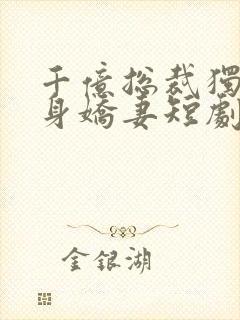 千億総裁獨
身嬌妻短劇
金銀湖